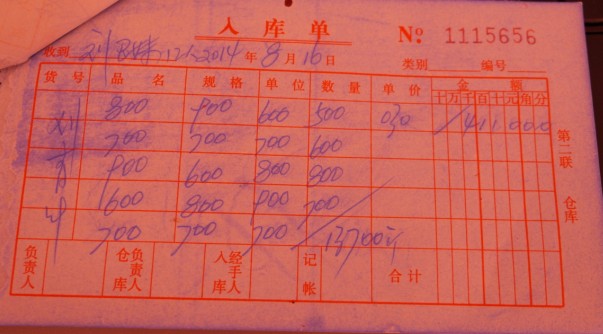 入库单
№ 1115656
收到 刘 2014年8月16日 类别 编号
货号 品名 规格 单位 数量 单价 金额
十万千百十元角分
800 900 600 500 030 411000
700 700 700 600
900 600 800 800
600 800 900 700
700 700 700 13700斤
第二联 仓库
负责人 仓库负责人 入库经手人 记帐 合计